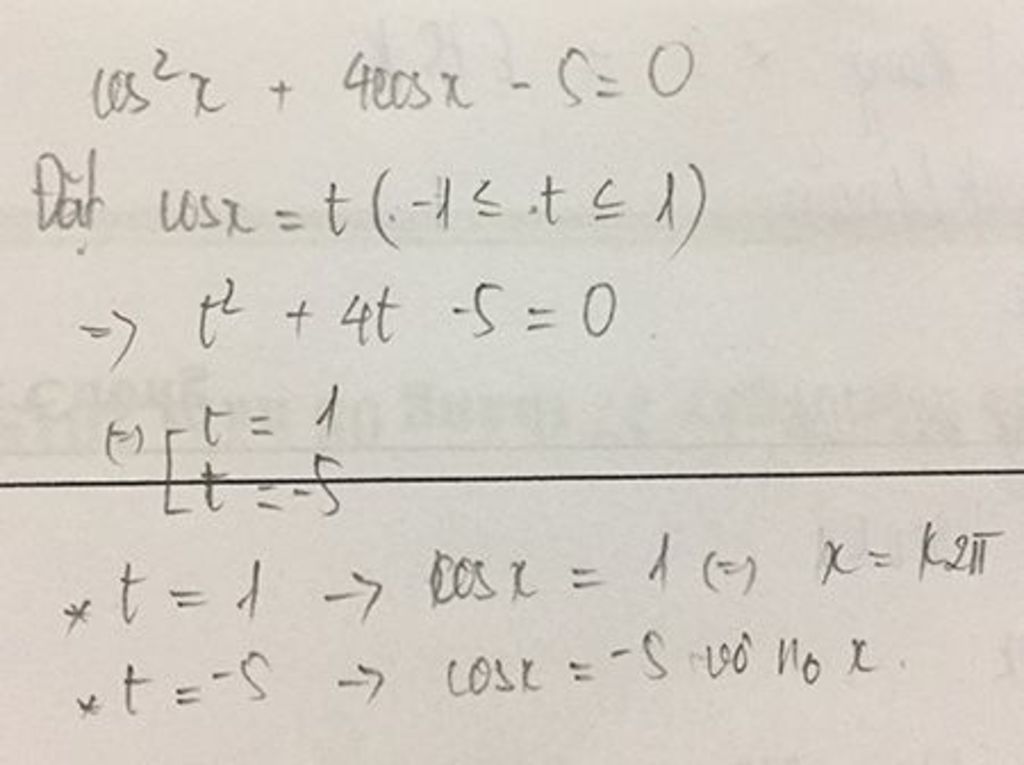 cos²x + 4cosx - 5 = 0
Đặt cosx = t (-1 ≤ t ≤ 1)
=> t² + 4t - 5 = 0
(=) [ t = 1
t = -5
* t = 1 -> cosx = 1 (=) x = k2π
* t = -5 -> cosx = -5 vô no x.